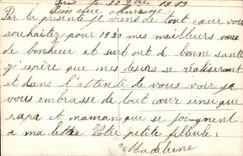 Par la présente je viens de tout cœur vous
souhaitez pour 1920 mes meilleurs vœux
de bonheur et surtout de bonne santé
j'espère que mes desirs se réaliseront
et dans l'attente de vous voir je
vous embrasse de tout cœur ainsi que
papa et maman qui se joignent
a ma lettre Votre petite filleule
Madeleine